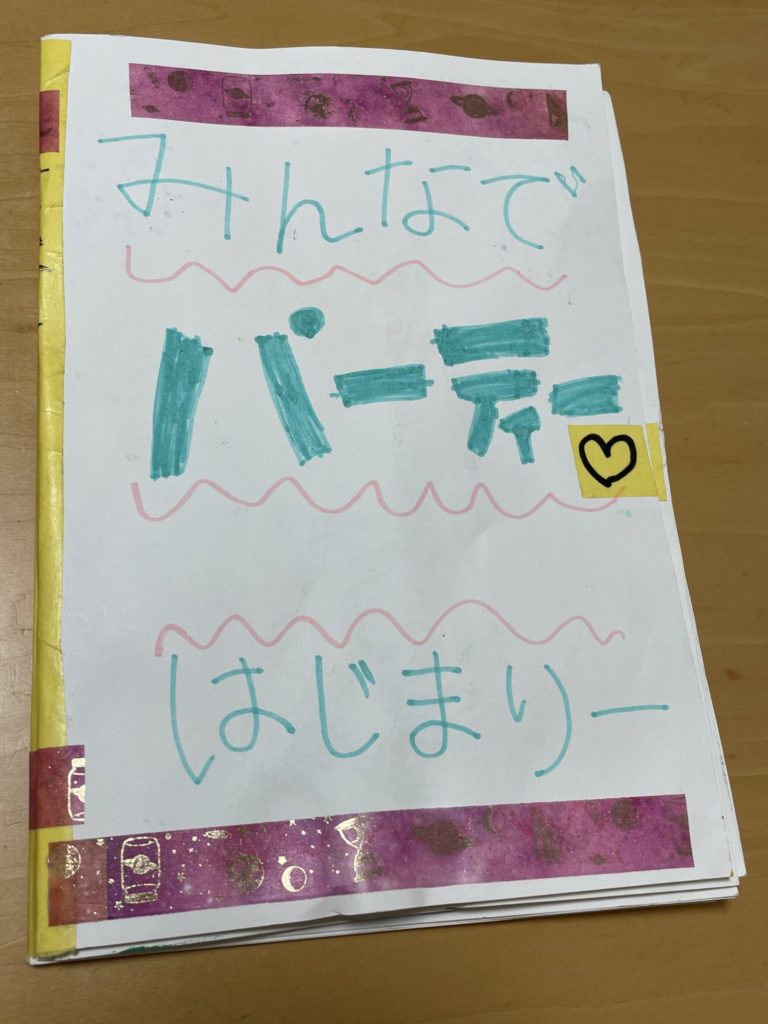 みんなで
パーティー
はじまりー